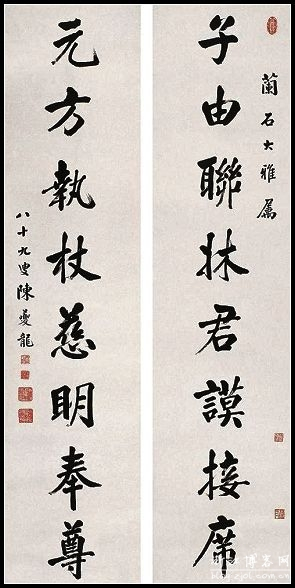 蘭石大雅屬
子由聯牀君謨接席
元方執杖慈明奉尊
八十九叟陳夔龍